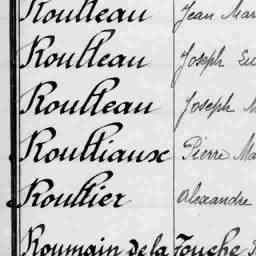 Roulleau Jean Mar
Roulleau Joseph
Roulleau Joseph M
Roulliaux Pierre Ma
Roullier Alexandre
Roumain de la Touche